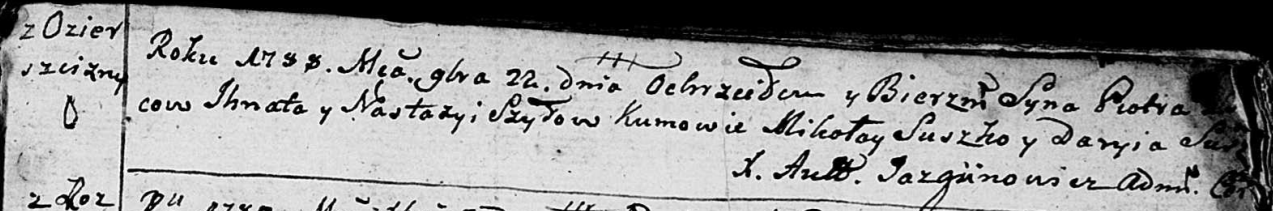 z Ozier
szcizny
Roku 1788. Mca. 9bra 22. dnia Ochrzciłem y Bierzm Syna Piotra
cow Ihnata y Nastazyi Szyłow Kumowie Mikołay Suszko y Daryia
X. Antt. Jazgunowicz Adm.
z Łoz